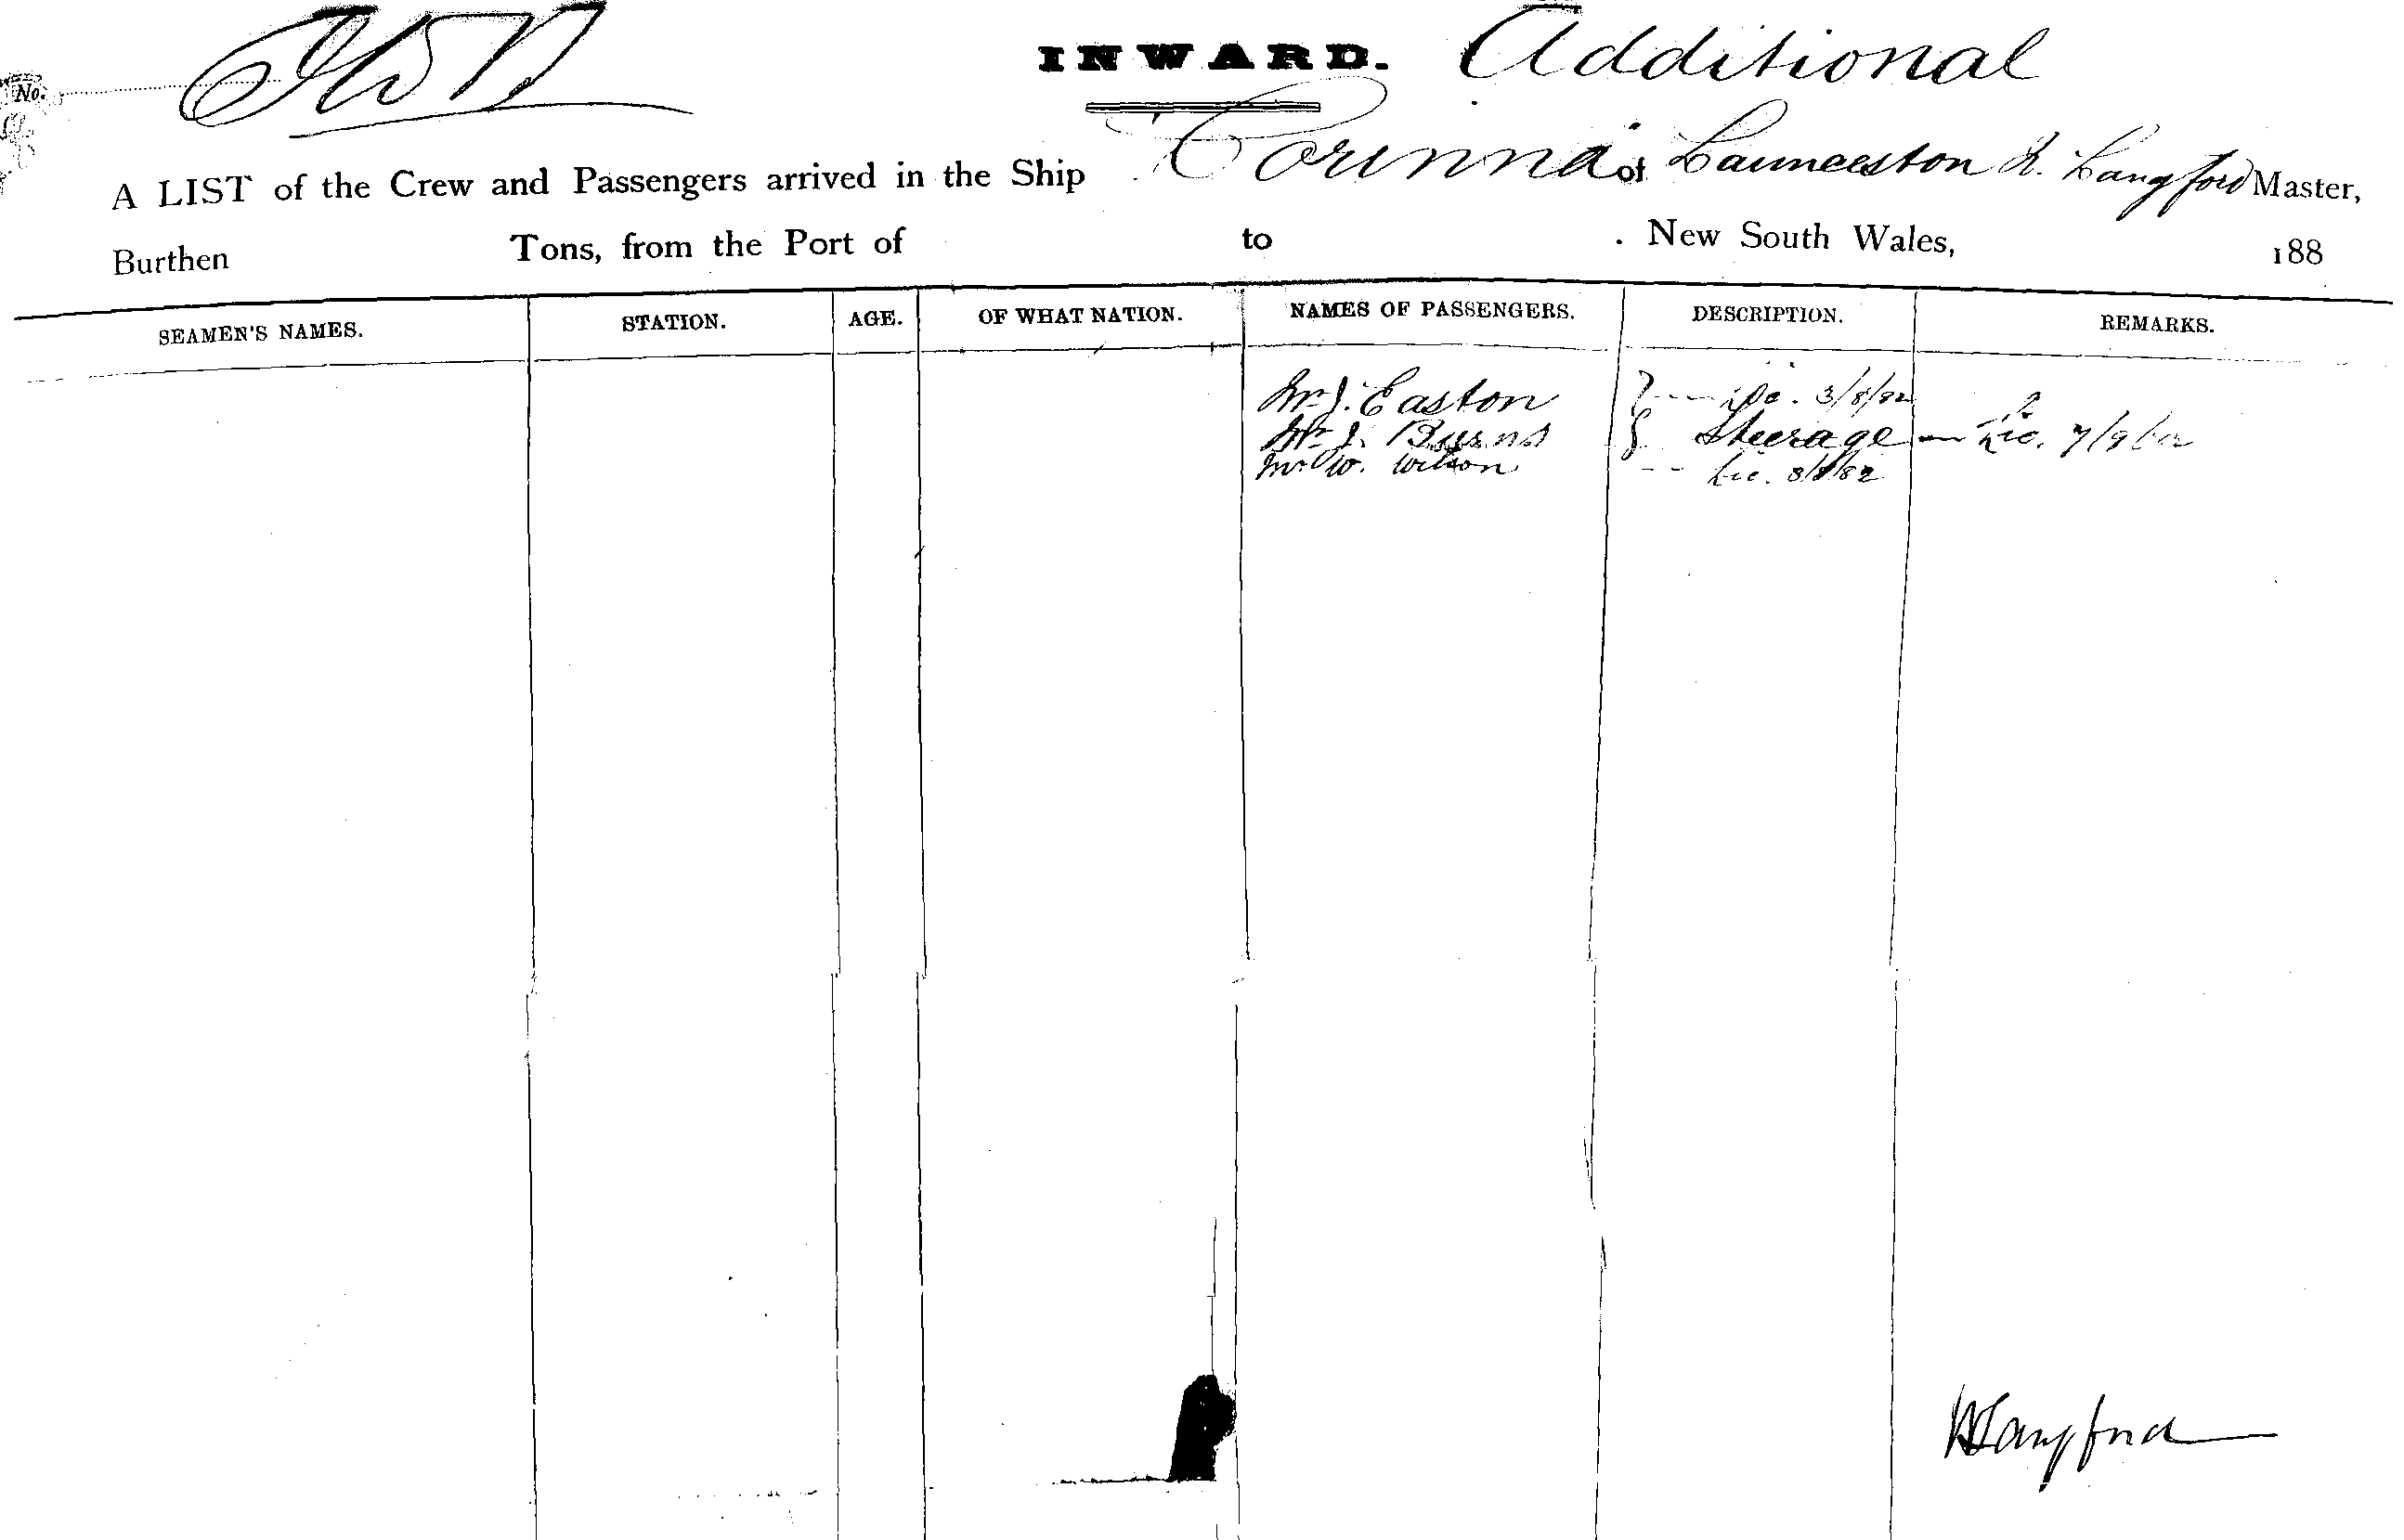 No.
INWARD. Additional
A LIST of the Crew and Passengers arrived in the Ship Corinna of Launceston Langford Master,
Burthen Tons, from the Port of to New South Wales, 188
SEAMEN'S NAMES. STATION. AGE. OF WHAT NATION. NAMES OF PASSENGERS. DESCRIPTION. REMARKS.
Mr J. Easton 3/8/82
Mr J. Burns Steerage
Mr W. Wilson
Langford